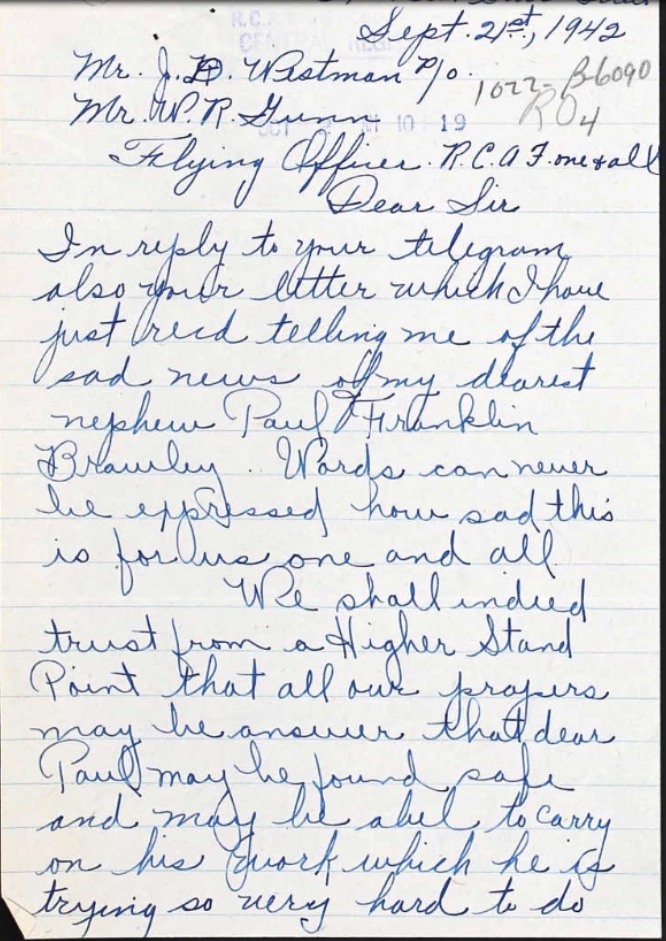 Sept. 21st, 1942
Mr. J. D. Westman %.
1022-B-6090
Mr. W. R. Gunn
RO4
R.C.A.F.
CENTRAL REGISTRY
OCT 2 AT 10 19
Flying Officer. R.C.A.F. one & all
Dear Sir
In reply to your telegram
also your letter which I have
just recd telling me of the
sad news of my dearest
nephew Paul Franklin
Brawley. Words can never
be expressed how sad this
is for us one and all
We shall indeed
trust from a Higher Stand
Point that all our prayers
may be answer that dear
Paul may be found safe
and may be abel to carry
on his work which he is
trying so very hard to do